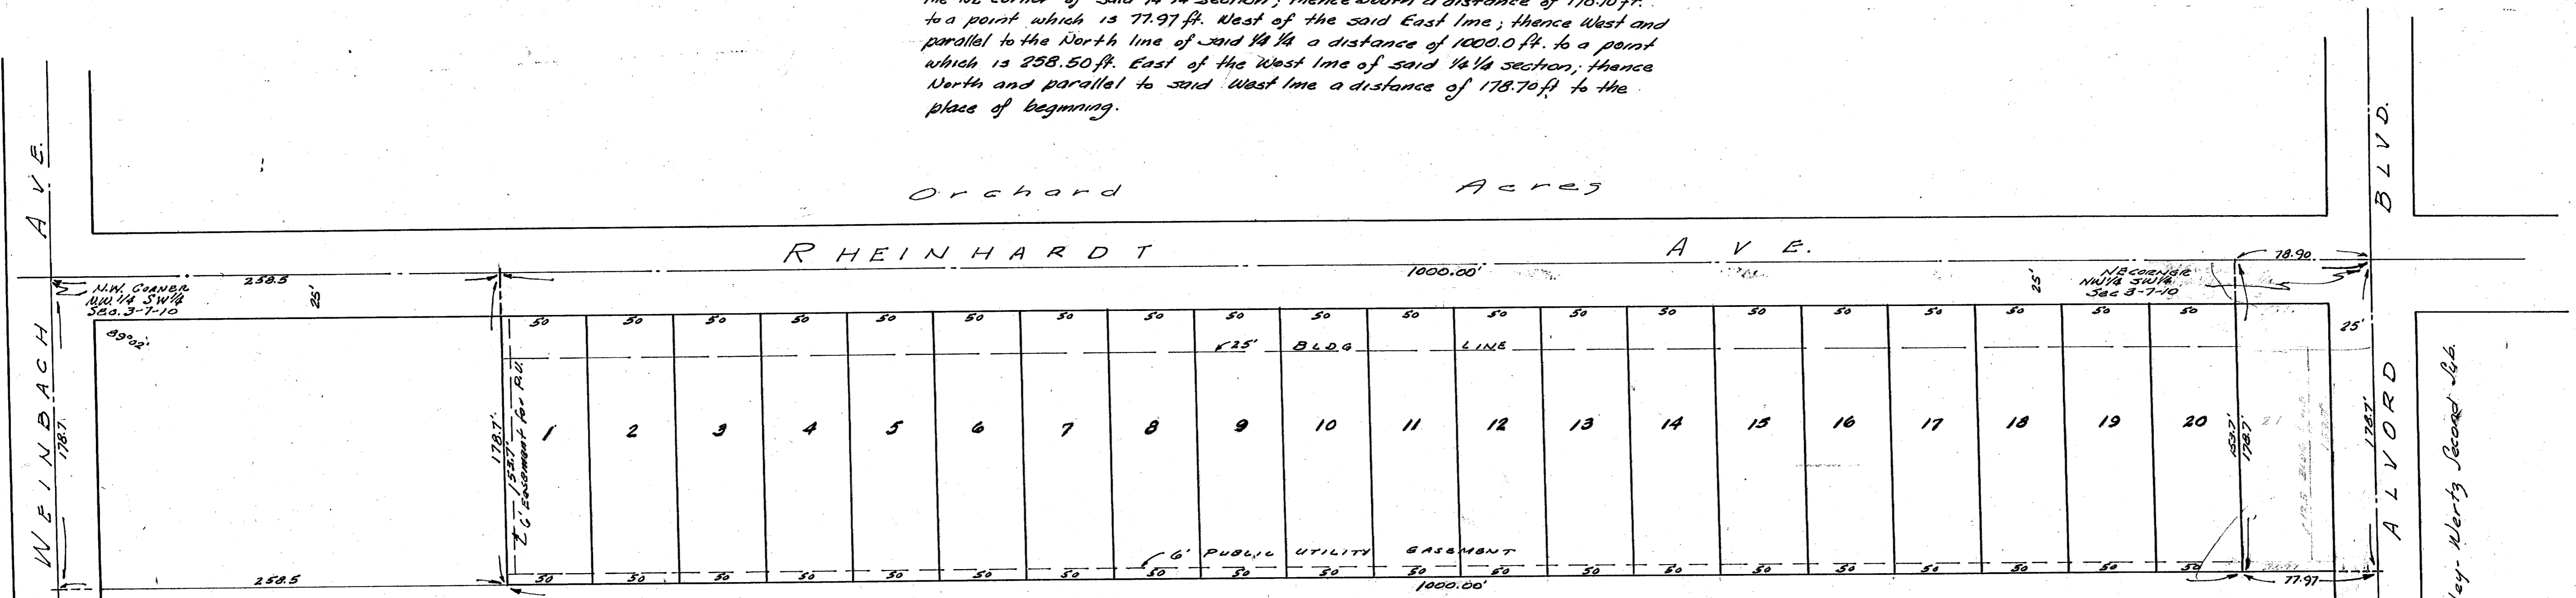 the NE corner of said 1/4 1/4 section; thence South a distance of 178.70 ft.
to a point which is 77.97 ft. West of the said East line; thence West and
parallel to the North line of said 1/4 1/4 a distance of 1000.0 ft. to a point
which is 258.50 ft. East of the West line of said 1/4 1/4 section; thence
North and parallel to said West line a distance of 178.70 ft to the
place of beginning.
Orchard Acres
WEINBACH AVE.
RHEINHARDT AVE.
ALVORD BLVD.
258.5
1000.00'
78.90
N.W. CORNER
NW 1/4 SW 1/4
Sec. 3-7-10
25'
25'
NE CORNER
NW 1/4 SW 1/4
Sec 3-7-10
25'
89°02'
50 50 50 50 50 50 50 50 50 50 50 50 50 50 50 50 50 50 50 50
25' BLDG LINE
178.7
178.7'
153.7'
6' Easement for P.U.
1 2 3 4 5 6 7 8 9 10 11 12 13 14 15 16 17 18 19 20 21
153.7'
178.7'
178.7'
6' PUBLIC UTILITY EASEMENT
50 50 50 50 50 50 50 50 50 50 50 50 50 50 50 50 50 50 50 50
258.5
1000.00'
77.97
ey-Wertz Second Sub.